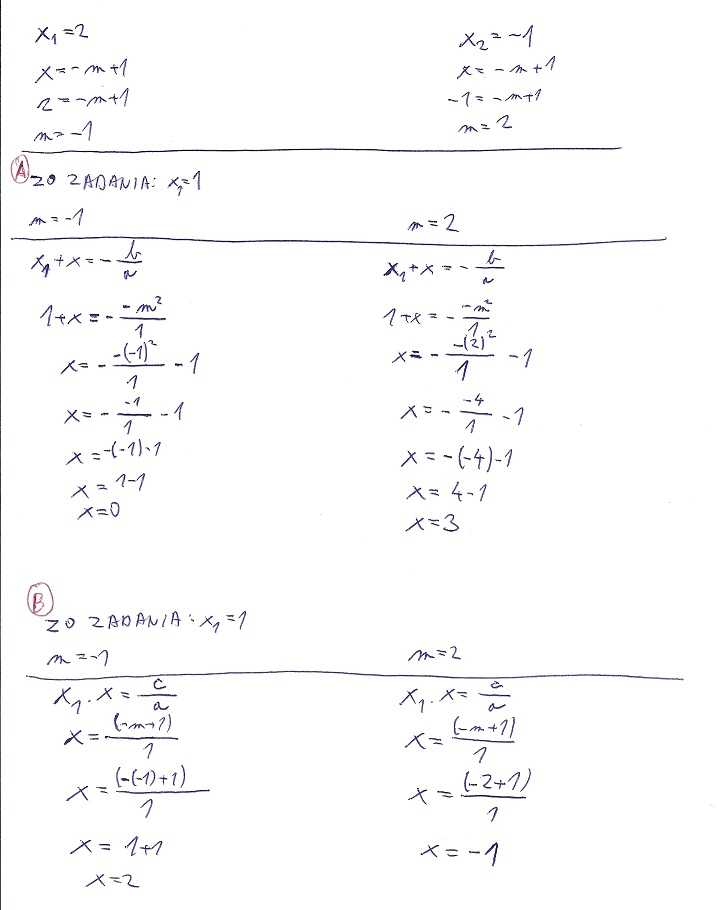 x₁=2
x=-m+1
2=-m+1
m=-1
x₂=-1
x=-m+1
-1=-m+1
m=2
A
ZO ZADANIA: x₁=1
m=-1
x₁+x=-b/a
1+x=-(-m²)/1
x=-(-(-1)²)/1-1
x=-(-1)/1-1
x=-(-1)-1
x=1-1
x=0
m=2
x₁+x=-b/a
1+x=-(-m²)/1
x=-(-(2)²)/1-1
x=-(-4)/1-1
x=-(-4)-1
x=4-1
x=3
B
ZO ZADANIA: x₁=1
m=-1
x₁.x=c/a
x=(-m+1)/1
x=(-(-1)+1)/1
x=1+1
x=2
m=2
x₁.x=c/a
x=(-m+1)/1
x=(-2+1)/1
x=-1